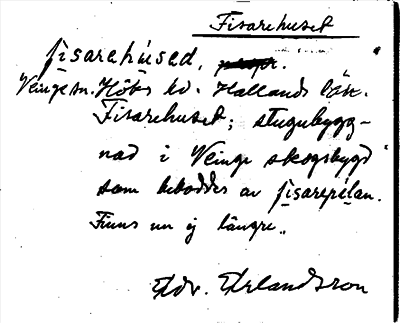 Fisarehuset
fisarehused,
Veinge sn. Höks hd. Hallands län.
Fisarehuset; stugubygg-
nad i Veinge skogsbygd
som beboddes av fisarepelan.
Finns nu ej längre.
Edv. Erlandsson